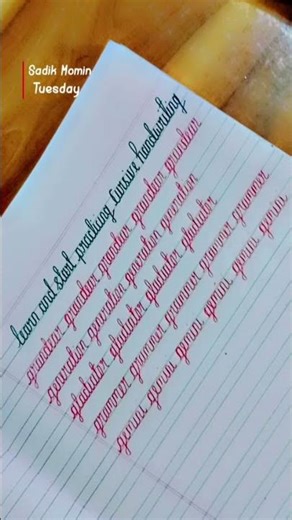 Sadik Momin
Tuesday
learn and start practicing cursive handwriting
grandeur grandeur grandeur grandeur grandeur
generation generation generation generation
gladiator gladiator gladiator gladiator
grammer grammer grammer grammer grammer
genius genius genius genius genius genius